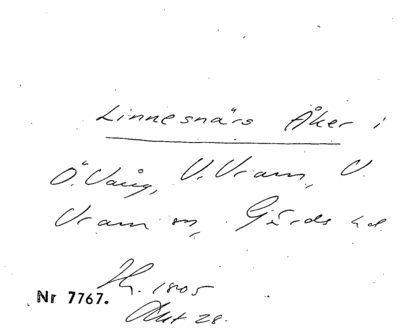 Linnesnärs Åker i
Ö. Vång, V. Vram, V.
Vram sn, Gärds hd.
Nr 7767.
1805
Akt 28.